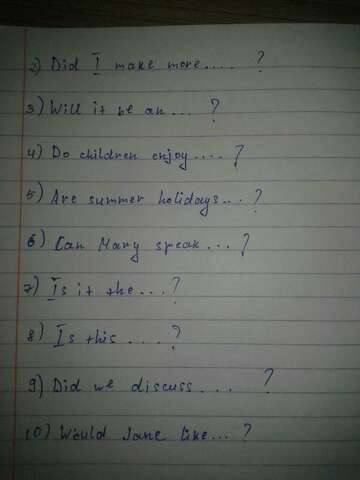 2) Did I make more.... ?
3) Will it be an... ?
4) Do children enjoy....?
5) Are summer holidays...?
6) Can Mary speak...?
7) Is it the...?
8) Is this....?
9) Did we discuss.... ?
10) Would Jane like...?